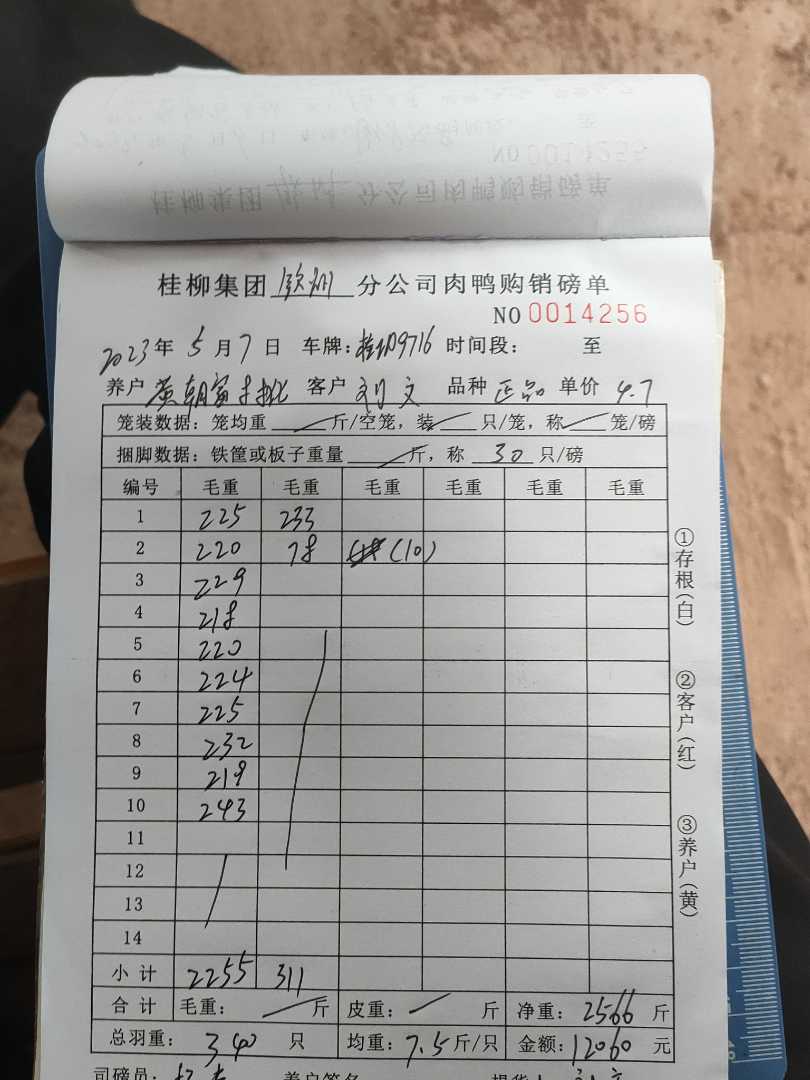 NO 0014255
桂柳集团 分公司肉鸭购销磅单
桂柳集团 钦州 分公司肉鸭购销磅单
NO 0014256
2023年 5月 7日 车牌: 9716 时间段: 至
养户 黄朝富 客户 刘文 品种 正品 单价 4.7
笼装数据: 笼均重 斤/空笼, 装 只/笼, 称 笼/磅
捆脚数据: 铁筐或板子重量 斤, 称 30 只/磅
编号 毛重 毛重 毛重 毛重 毛重 毛重
1 225 233
2 220 78 (10)
3 229
4 218
5 220
6 224
7 225
8 232
9 219
10 243
11
12
13
14
小计 2255 311
合计 毛重: 斤 皮重: 斤 净重: 2566 斤
总羽重: 340 只 均重: 7.5 斤/只 金额: 12060 元
司磅员: 养户签名
①存根(白)
②客户(红)
③养户(黄)